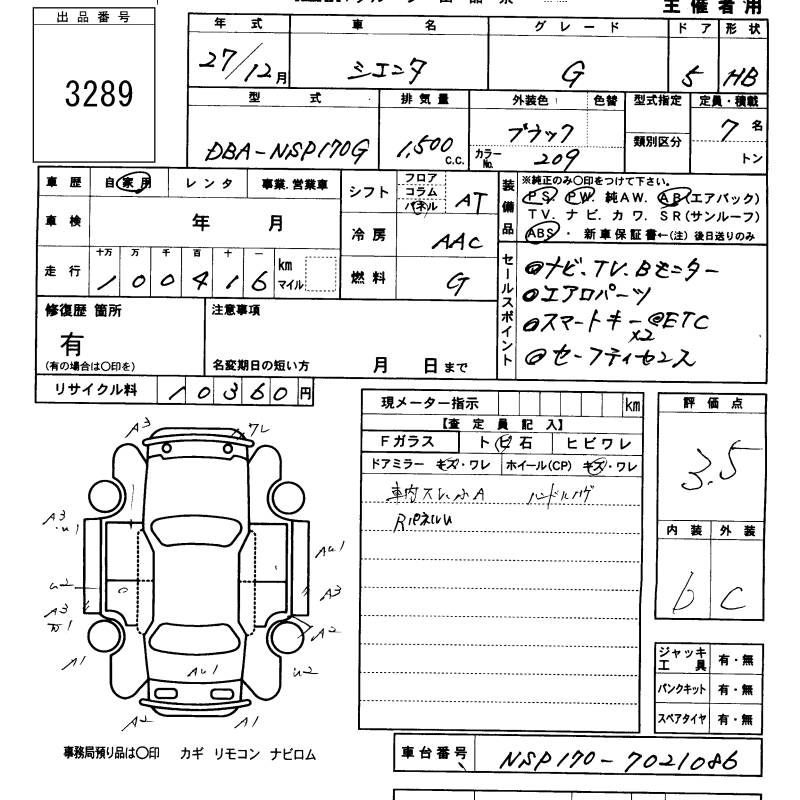 主催者用
出品番号
3289
年式 車名 グレード ドア 形状
27/12月 シエンタ G 5 HB
型式 排気量 外装色 色替 型式指定 定員・積載
DBA-NSP170G 1,500 C.C. ブラック カラーNo. 209 類別区分 7名 トン
車歴 自家用 レンタ 事業.営業車
車検 年 月
走行 十万 万 千 百 十 一
100416 km マイル
シフト フロア コラム パネル AT
冷房 AAC
燃料 G
装備品 ※純正のみ〇印をつけて下さい。
PS. PW. 純AW. AB(エアバック)
TV. ナビ. カワ. SR(サンルーフ)
ABS・新車保証書←(注)後日送りのみ
セールスポイント
@ナビ、TV、Bモニター
@エアロパーツ
@スマートキー @ETC
x2
@セーフティセンス
修復歴 箇所
有
(有の場合は〇印を)
注意事項
名変期日の短い方 月 日まで
リサイクル料 10360円
現メーター指示 km
【査定員記入】
Fガラス トビ石 ヒビワレ
ドアミラー キズ・ワレ ホイール(CP) キズ・ワレ
評価点
3.5
内装 外装
b C
A3 ワレ
A3
U2
A3
A1
AU1
A3
A2
AU1 U2
A2 A1
ジャッキ工具 有・無
パンクキット 有・無
スペアタイヤ 有・無
事務局預り品は〇印 カギ リモコン ナビロム
車台番号 NSP170-7021086